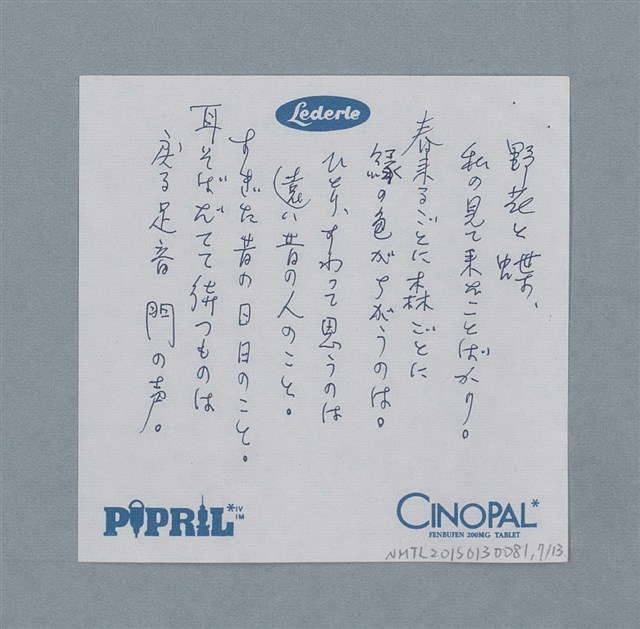 Lederle
野花と蝶、
私の見て来たことばかり。
春来るごとに森ごとに
緑の色がちがうのは。
ひとり、すわって思うのは
遠い昔の人のこと。
すぎた昔の日日のこと。
耳そばだてて待つものは
戻る足音 門の声。
PIPRIL*IV IM
CINOPAL*
FENBUFEN 200MG TABLET
NMTL20150130081,7/13